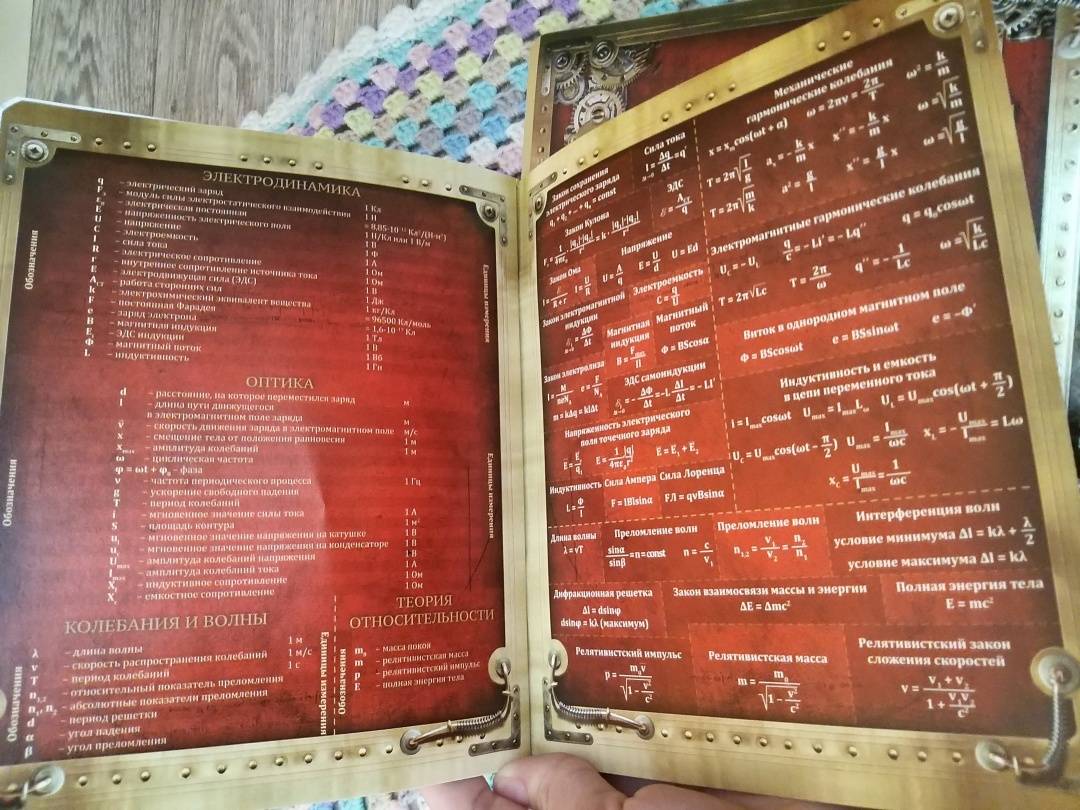 ЭЛЕКТРОДИНАМИКА
Обозначения
Единицы измерения
q – электрический заряд 1 Кл
– модуль силы электростатического взаимодействия 1 Н
– электрическая постоянная = 8,85·10⁻¹² Кл²/(Н·м²)
E – напряженность электрического поля 1 Н/Кл или 1 В/м
U – напряжение 1 В
C – электроемкость 1 Ф
I – сила тока 1 А
– электрическое сопротивление 1 Ом
r – внутреннее сопротивление источника тока 1 Ом
– электродвижущая сила (ЭДС) 1 В
– работа сторонних сил 1 Дж
k – электрохимический эквивалент вещества 1 кг/Кл
F – постоянная Фарадея = 96500 Кл/моль
e – заряд электрона = 1,6·10⁻¹⁹ Кл
B – магнитная индукция 1 Тл
– ЭДС индукции 1 В
Ф – магнитный поток 1 Вб
L – индуктивность 1 Гн
ОПТИКА
Обозначения
Единицы измерения
d – расстояние, на которое переместился заряд м
l – длина пути движущегося
в электромагнитном поле заряда м
v̄ – скорость движения заряда в электромагнитном поле м/с
x – смещение тела от положения равновесия 1 м
xₘₐₓ – амплитуда колебаний 1 м
ω – циклическая частота
φ = ωt + φ₀ – фаза
ν – частота периодического процесса 1 Гц
g – ускорение свободного падения
T – период колебаний
i – мгновенное значение силы тока 1 А
S – площадь контура 1 м²
– мгновенное значение напряжения на катушке 1 В
– мгновенное значение напряжения на конденсаторе 1 В
Uₘₐₓ – амплитуда колебаний напряжения 1 В
Iₘₐₓ – амплитуда колебаний тока 1 А
– индуктивное сопротивление 1 Ом
– емкостное сопротивление 1 Ом
КОЛЕБАНИЯ И ВОЛНЫ
Обозначения
Единицы измерения
λ – длина волны 1 м
v – скорость распространения колебаний 1 м/с
T – период колебаний 1 с
– относительный показатель преломления
– абсолютные показатели преломления
d – период решетки
α – угол падения
β – угол преломления
ТЕОРИЯ
ОТНОСИТЕЛЬНОСТИ
Обозначения
m₀ – масса покоя
m – релятивистская масса
p – релятивистский импульс
E – полная энергия тела
Закон сохранения
электрического заряда
q₁ + q₂ + ··· + qₙ = const
Сила тока
I = Δq/Δt = q'
Закон Кулона
ЭДС
Закон Ома
I = U/R
Напряжение
U = A/q E = U/d U = Ed
Электроемкость
C = q/U
Закон электромагнитной
индукции
Магнитная
индукция
Магнитный
поток
Ф = BScosα
Закон электролиза
m = kΔq = kIΔt
ЭДС самоиндукции
Напряженность электрического
поля точечного заряда
E = E₁ + E₂
Индуктивность
L = Ф/I
Сила Ампера
F = IBlsinα
Сила Лоренца
FЛ = qvBsinα
Механические
гармонические колебания
x = xₘcos(ωt + α) ω = 2πν = 2π/T ω² = k/m
T = 2π√(l/g) aₓ = – k/m x x'' = – k/m x ω = √(k/m)
T = 2π√(m/k) x'' = g/l x ω = √(g/l)
Электромагнитные гармонические колебания
q/c = – Li' = – Lq'' q = q₀cosωt
T = 2π√Lc T = 2π/ω q'' = – 1/Lc ω = √(k/Lc)
Виток в однородном магнитном поле
Ф = BScosωt e = BSsinωt e = –Ф'
Индуктивность и емкость
в цепи переменного тока
i = Iₘₐₓcosωt Uₘₐₓ = IₘₐₓLω U_L = Uₘₐₓcos(ωt + π/2)
U_c = Uₘₐₓcos(ωt – π/2) Uₘₐₓ = Iₘₐₓ/ωc x_L = – Uₘₐₓ/Iₘₐₓ = Lω
x_c = Uₘₐₓ/Iₘₐₓ = 1/ωc
Длина волны
λ = vT
Преломление волн
sinα/sinβ = n = const n = c/v₁
Преломление волн
n₁,₂ = v₁/v₂ = n₂/n₁
Интерференция волн
условие минимума Δl = kλ + λ/2
условие максимума Δl = kλ
Дифракционная решетка
Δl = dsinφ
dsinφ = kλ (максимум)
Закон взаимосвязи массы и энергии
ΔE = Δmc²
Полная энергия тела
E = mc²
Релятивистский импульс
p = m₀v/√(1 – v²/c²)
Релятивистская масса
m = m₀/√(1 – v²/c²)
Релятивистский закон
сложения скоростей
v = (v₁ + v₂)/(1 + v₁v₂/c²)